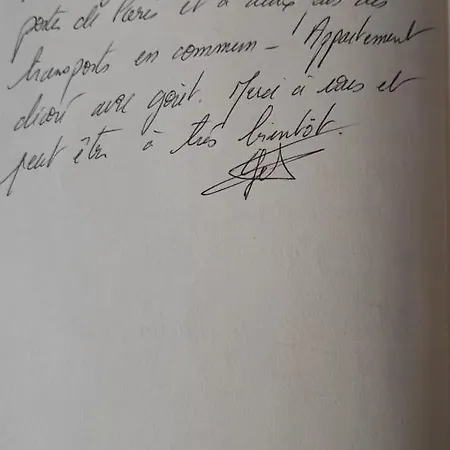 portes de Paris et à deux pas des
transports en commun - Appartement
décoré avec goût. Merci à vous et
peut être à très bientôt.